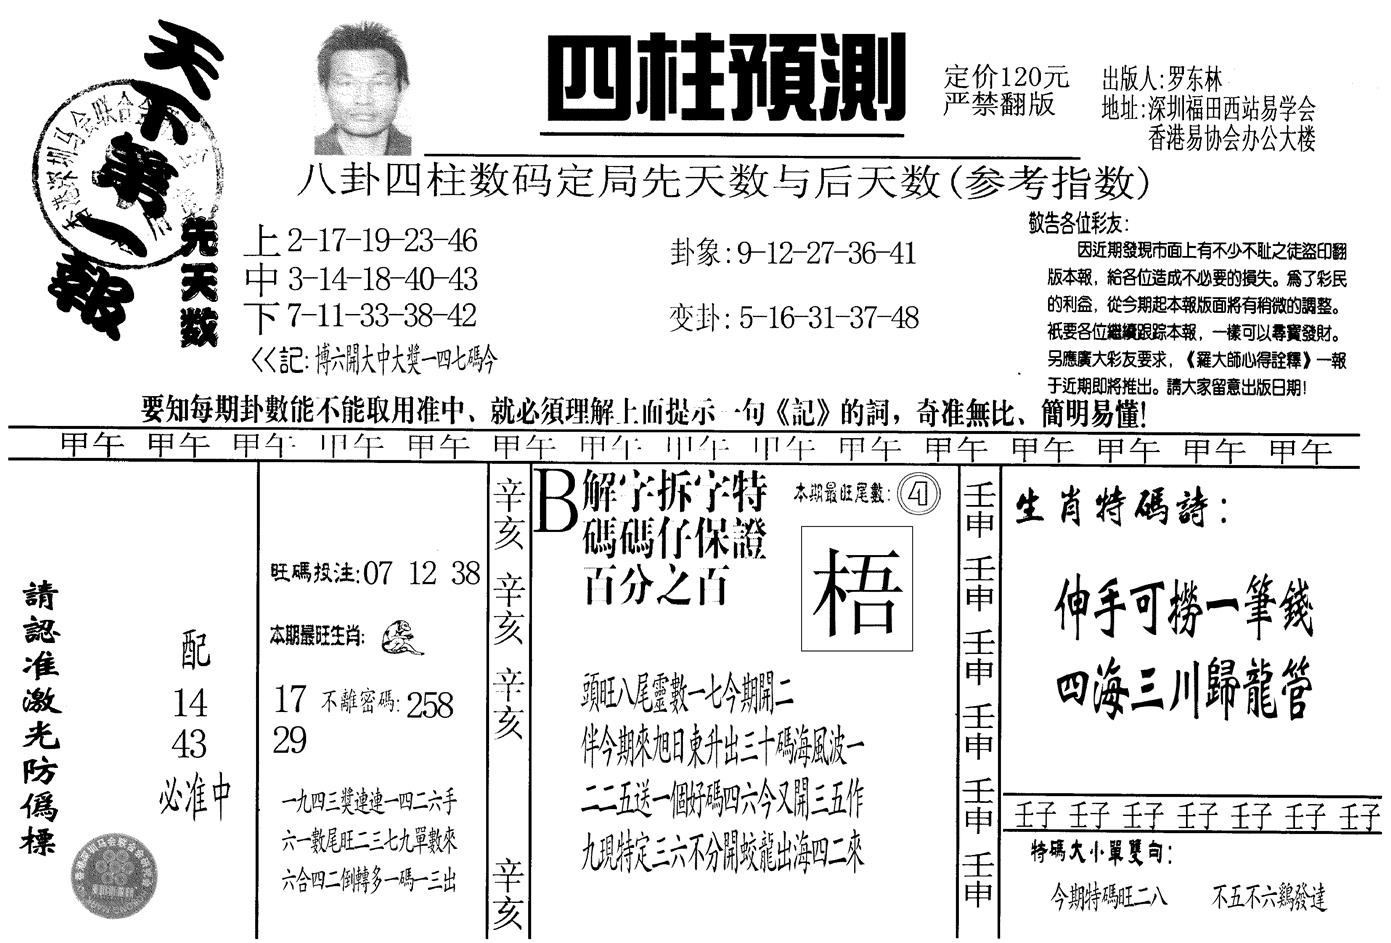 天下第一報
先天数
四柱預測
定价120元
严禁翻版
出版人:罗东林
地址:深圳福田西站易学会
香港易协会办公大楼
八卦四柱数码定局先天数与后天数(参考指数)
上 2-17-19-23-46
中 3-14-18-40-43
下 7-11-33-38-42
<<記: 博六開大中大獎一四七碼今
卦象: 9-12-27-36-41
变卦: 5-16-31-37-48
敬告各位彩友:
因近期發現市面上有不少不耻之徒盜印翻
版本報，給各位造成不必要的損失。爲了彩民
的利益，從今期起本報版面將有稍微的調整。
衹要各位繼續跟踪本報，一樣可以尋寶發財。
另應廣大彩友要求，《羅大師心得詮釋》一報
于近期即將推出。請大家留意出版日期!
要知每期卦數能不能取用准中、就必須理解上面提示一句《記》的詞，奇准無比、簡明易懂!
甲午 甲午 甲午 甲午 甲午 甲午 甲午 甲午 甲午 甲午 甲午 甲午 甲午 甲午 甲午
請認准激光防僞標
配
14
43
必准中
旺碼投注:07 12 38
本期最旺生肖:
17 不離密碼: 258
29
一九四三獎連連一四二六手
六一數尾旺二三七九單數來
六合四二倒轉多一碼一三出
辛亥
辛亥
辛亥
辛亥
B
解字拆字特
碼碼仔保證
百分之百
本期最旺尾數: 4
梧
頭旺八尾靈數一七今期開二
伴今期來旭日東升出三十碼海風波一
二二五送一個好碼四六今又開三五作
九現特定三六不分開蛟龍出海四二來
壬申
壬申
壬申
壬申
壬申
壬申
生肖特碼詩:
伸手可撈一筆錢
四海三川歸龍管
壬子 壬子 壬子 壬子 壬子 壬子 壬子
特碼大小單雙句:
今期特碼旺二八 不五不六鷄發達